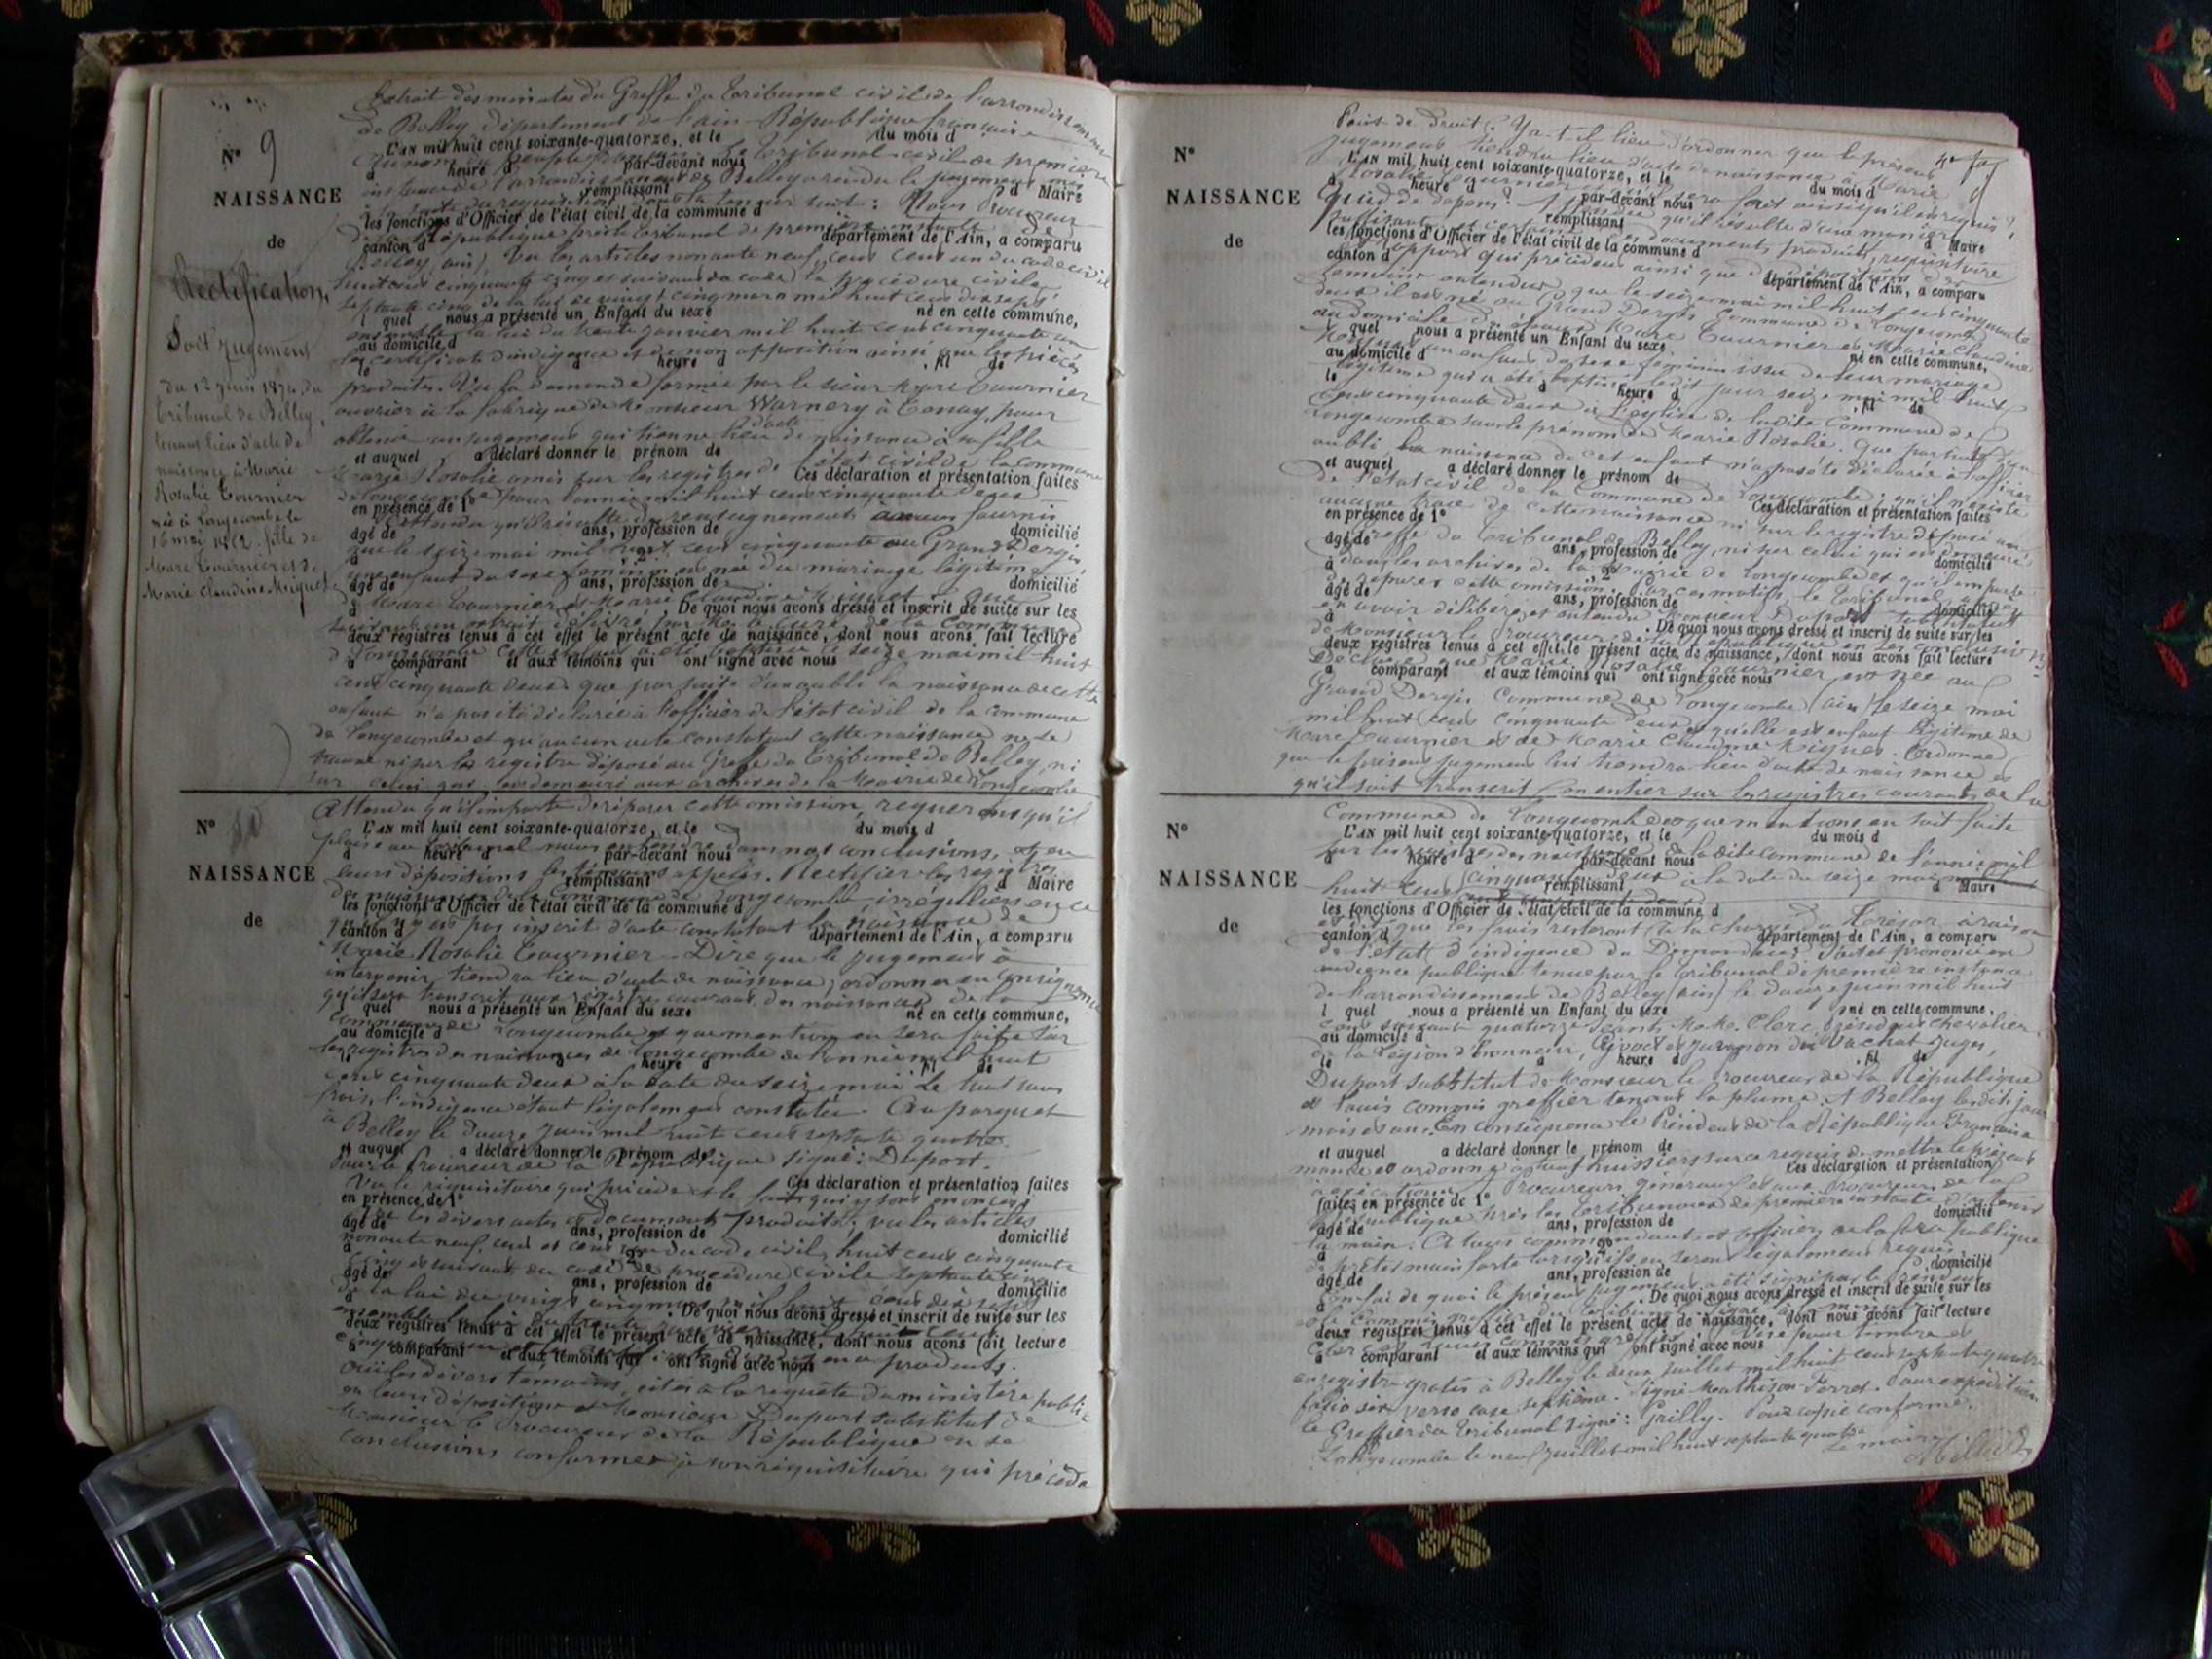 Extrait des minutes du Greffe du Tribunal civil de l'arrondissement
de Belley département de l'ain République française
L'AN mil huit cent soixante-quatorze, et le du mois d
N° 9
Au nom du peuple français Le Tribunal civil de première
à heure d par-devant nous
instance de l'arrondissement de Belley a rendu le jugement
remplissant d Maire
NAISSANCE
la teneur suit : Nous Procureur
les fonctions d'Officier de l'état civil de la commune d
de
de la République près le Tribunal de première instance de
canton d département de l'Ain, a comparu
Belley (ain) Vu les articles nonante neuf, cent cent un du code civil
Rectification
huit cent cinquante cinq et suivants du code de procédure civile
septante cinq de la loi de vingt cinq mars mil huit cent dix sept
l quel nous a présenté un Enfant du sexe né en cette commune,
ensemble la loi du trente janvier mil huit cent cinquante un
au domicile d
Soit jugement
les certificats d'indigence et de non opposition ainsi que les pièces
le à heure d , fil de
du 12 juin 1874, du
produites. Vu la demande formée par le sieur Marc Tournier
Tribunal de Belley,
ouvrier à la fabrique de Monsieur Warnery à Tenay, pour
tenant lieu d'acte de
obtenir un jugement qui tienne lieu d'acte de naissance à sa fille
et auquel a déclaré donner le prénom de
naissance à Marie
Marie Rosalie omis sur les registres de l'état civil de la commune
Ces déclaration et présentation faites
Rosalie Tournier
de Longecombe pour l'année mil huit cent cinquante deux
en présence de 1°
née à Longecombe le
Attendu qu'il résulte des renseignements fournis
âgé de ans, profession de domicilié
16 mai 1852 fille de
que le seize mai mil huit cent cinquante au Grand Dergis
à 2°
Marc Tournier et de
une enfant du sexe féminin est née du mariage légitime
âgé de ans, profession de domicilié
Marie Claudine Miguet
de Marc Tournier et Marie Claudine Miguet que
à . De quoi nous avons dressé et inscrit de suite sur les
suivant un extrait délivré par Mr le Curé de la Commune
deux registres tenus à cet effet le présent acte de naissance, dont nous avons fait lecture
de Longecombe cette enfant a été baptisée le seize mai mil huit
a comparant et aux témoins qui ont signé avec nous
cent cinquante deux. que par suite d'un oubli la naissance de cette
enfant n'a pas été déclarée à l'officier de l'état civil de la commune
de Longecombe et qu'aucun acte constatant cette naissance ne se
trouve ni sur le registre déposé au Greffe du Tribunal de Belley, ni
sur celui qui est demeuré aux archives de la Mairie de Longecombe
Attendu qu'il importe de réparer cette omission, requérons qu'il
N° 10
L'AN mil huit cent soixante-quatorze, et le du mois d
plaise au tribunal nous entendre dans nos conclusions, et en
à heure d par-devant nous
NAISSANCE
leurs dépositions les témoins appelés. Rectifier les registres
remplissant d Maire
de naissance de la Commune de Longecombe, irréguliers en ce
les fonctions d'Officier de l'état civil de la commune d
de
qu'il n'y est pas inscrit d'acte constatant la naissance de
canton d département de l'Ain, a comparu
Marie Rosalie Tournier. Dire que le jugement à
intervenir, tiendra lieu d'acte de naissance, ordonner en conséquence
qu'il sera transcrit aux registres courants des naissances de la
l quel nous a présenté un Enfant du sexe né en cette commune,
commune de Longecombe et que mention en sera faite sur
au domicile d
les registres des naissances de Longecombe de l'année mil huit
le à heure d , fil de
cent cinquante deux à la date du seize mai Le tout sans
frais, l'indigence étant légalement constatée. Au parquet
à Belley le douze juin mil huit cent septante quatre.
et auquel a déclaré donner le prénom de
pour le Procureur de la République signé : Duport.
Ces déclaration et présentation faites
Vu le réquisitoire qui précède et les faits qui y sont énoncés
en présence de 1°
Vu les divers actes et documents produits ; vu les articles
âgé de ans, profession de domicilié
nonante neuf, cent et cent un du code civil, huit cent cinquante
à 2°
cinq et suivants du code de procédure civile septante cinq
âgé de ans, profession de domicilié
de la loi du vingt cinq mars mil huit cent dix sept
à . De quoi nous avons dressé et inscrit de suite sur les
ensemble la loi du trente janvier mil huit cent
deux registres tenus à cet effet le présent acte de naissance, dont nous avons fait lecture
a comparant et aux témoins qui ont signé avec nous
Ouï les divers témoins, cités à la requête du ministère public
en leurs dépositions et Monsieur Duport substitut de
Monsieur le Procureur de la République en ses
conclusions conformes à son réquisitoire qui précède
Point de Droit : Y a-t-il lieu d'ordonner que le présent
jugement tiendra lieu d'acte de naissance à Marie
N°
4e fol
L'AN mil huit cent soixante-quatorze, et le du mois d
Rosalie Tournier et sera fait ainsi qu'il est requis ?
à heure d par-devant nous
NAISSANCE
Quid de dépens ? Attendu qu'il résulte d'une manière
remplissant d Maire
suffisante et certaine des documents produits, réquisitoire
les fonctions d'Officier de l'état civil de la commune d
de
rapport qui précèdent ainsi que des dépositions des
canton d département de l'Ain, a comparu
témoins entendus, que le seize mai mil huit cent cinquante
deux il est né au Grand Dergis Commune de Longecombe
au domicile des époux Marc Tournier et Marie Claudine
l quel nous a présenté un Enfant du sexe né en cette commune,
Miguet un enfant du sexe féminin issu de leur mariage
au domicile d
légitime qui a été baptisé ledit jour seize mai mil huit
le à heure d , fil de
cent cinquante deux à l'église de ladite Commune de
Longecombe sous le prénom de Marie Rosalie. Que par suite d'un
oubli la naissance de cet enfant n'a pas été déclarée à l'officier
et auquel a déclaré donner le prénom de
de l'état civil de la Commune de Longecombe ; qu'il n'existe
Ces déclaration et présentation faites
aucune trace de cette naissance ni sur le registre déposé au
en présence de 1°
greffe du Tribunal de Belley, ni sur celui qui est demeuré
âgé de ans, profession de domicilié
dans les archives de la Mairie de Longecombe et qu'il importe
à 2°
de réparer cette omission, par ces motifs, le Tribunal, après
âgé de ans, profession de domicilié
en avoir délibéré, et entendu Monsieur Duport substitut
à . De quoi nous avons dressé et inscrit de suite sur les
de Monsieur le Procureur de la République en ses conclusions
deux registres tenus à cet effet le présent acte de naissance, dont nous avons fait lecture
Déclare que Marie Rosalie Tournier est née au
a comparant et aux témoins qui ont signé avec nous
Grand Dergis Commune de Longecombe (ain) le seize mai
mil huit cent cinquante deux et qu'elle est enfant légitime de
Marc Tournier et de Marie Claudine Miguet. Ordonne
que le présent jugement lui tiendra lieu d'acte de naissance et
qu'il soit transcrit en entier sur les registres courants de la
Commune de Longecombe et que mention en soit faite
N°
L'AN mil huit cent soixante-quatorze, et le du mois d
sur les registres des naissances de la dite commune de l'année mil
à heure d par-devant nous
NAISSANCE
huit cent cinquante deux à la date du seize mai
remplissant d Maire
les fonctions d'Officier de l'état civil de la commune d
de
et dit que les frais resteront à la charge du Trésor à raison
canton d département de l'Ain, a comparu
de l'état d'indigence du Demandeur. Fait et prononcé en
audience publique tenue par le Tribunal de première instance
de l'arrondissement de Belley (ain) le douze juin mil huit
l quel nous a présenté un Enfant du sexe né en cette commune,
cent septante quatorze Séants M.M. Clerc, Président Chevalier
au domicile d
de la Légion d'honneur, juges,
le à heure d , fil de
Duport substitut de Monsieur le Procureur de la République
et Louis commis greffier tenant la plume. A Belley lesdits jour
mois et an. En conséquence le Président de la République Française
et auquel a déclaré donner le prénom de
mande et ordonne à tous huissiers sur ce requis de mettre le présent
Ces déclaration et présentation
à exécution, Procureurs généraux et aux procureurs de la
faites en présence de 1°
République près les Tribunaux de première instance d'y tenir
âgé de ans, profession de domicilié
la main. A tous commandants et officiers de la force publique
à 2°
de prêter main forte lorsqu'ils en seront légalement requis.
âgé de ans, profession de domicilié
En foi de quoi le présent jugement a été signé par le Président
à . De quoi nous avons dressé et inscrit de suite sur les
et le commis greffier du Tribunal. Signé à la minute
deux registres tenus à cet effet le présent acte de naissance, dont nous avons fait lecture
Clerc et Louis commis greffier. Visé pour timbre et
a comparant et aux témoins qui ont signé avec nous
enregistré gratis à Belley le deux juillet mil huit cent septante quatre
folio six verso case septième. Signé Ferret. Pour expédition
le Greffier du Tribunal Signé : Grilly. Pour copie conforme.
Longecombe le neuf juillet mil huit septante quatre
Le maire
Millet